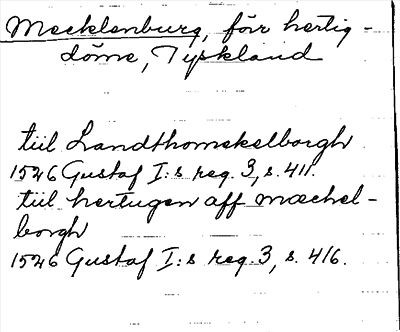 Mecklenburg, för hertig-
döme, Tyskland
tiil Landthomekelborgh
1526 Gustaf I:s reg. 3, s. 411.
tiil hertugen aff mæchel-
borgh
1526 Gustaf I:s reg. 3, s. 416.